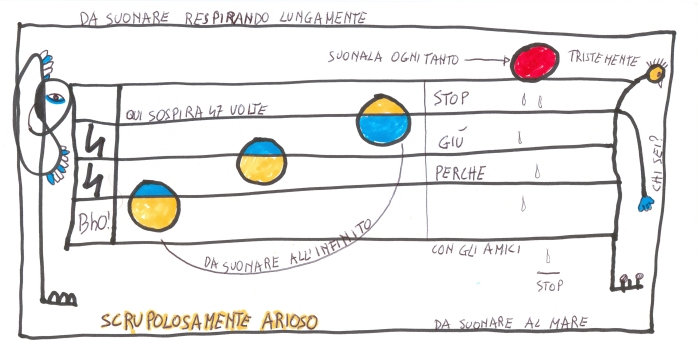 DA SUONARE RESPIRANDO LUNGAMENTE
SUONALA OGNI TANTO
TRISTEMENTE
QUI SOSPIRA 47 VOLTE
STOP
GIÚ
PERCHE
BhO!
CHI SEI?
DA SUONARE ALL'INFINITO
CON GLI AMICI
STOP
SCRUPOLOSAMENTE ARIOSO
DA SUONARE AL MARE